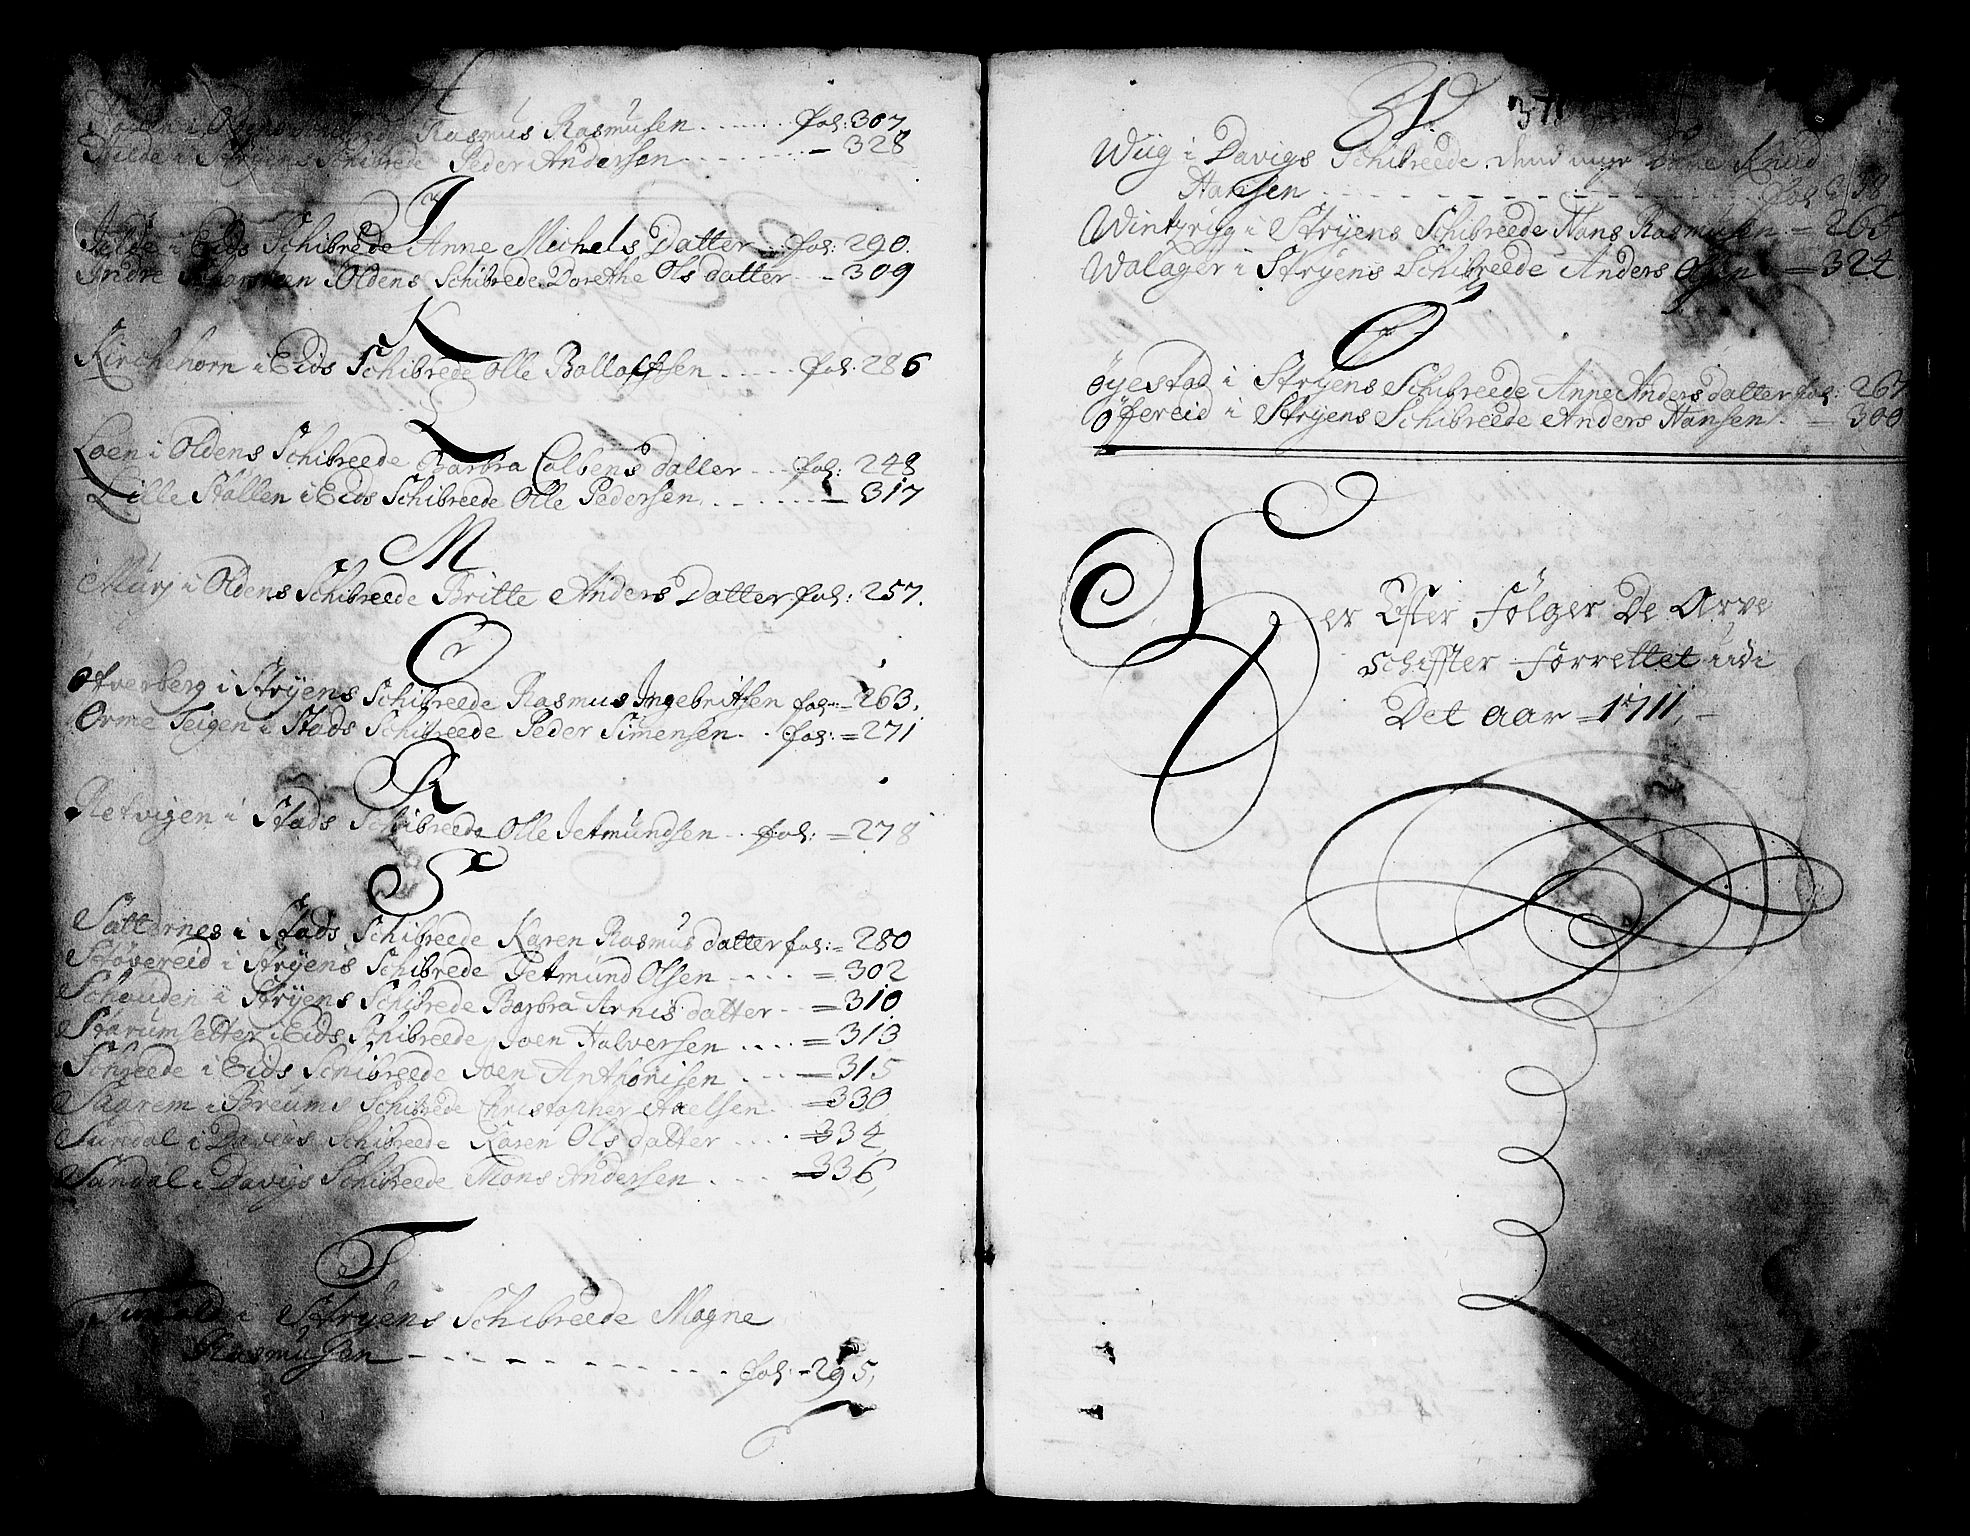 H
Rasmus Rasmusen fol: 307
Hilde i Stryens Schibrede Peder Andersen 328
I
Jelde i Eids Schibreede Anne Michels Datter fol: 290
Indre i Oldens Schibrede Dorethe Ols datter 309
K
Kirchehorn i Eids Schibrede Olle Ballaffsen fol: 286
L
Loen i Oldens Schibreede Barbra Colbens datter fol: 248
Lille Stallen i Eids Schibreede Olle Pedersen 317
M
i Oldens Schibreede Britte Anders Datter fol: 257.
O
i Stryens Schibreede Rasmus Ingebritsen fol 263.
Orme Teigen i Stads Schibreede Peder Simensen fol: = 271
R
Retvigen i Stads Schibreede Olle Jetmundsen fol: = 278
S
i Stads Schibreede Karen Rasmus datter fol: = 280
Støvereid i Stryens Schibrede Jetmund Olsen = 302
Schouden i Stryens Schibrede Barbra Arnis datter = 310
Starumsetter i Eids Schibreede Joen Halversen = 313
Schreede i Eids Schibreede Joen Anthonisen = 315
Sagrem i Breums Schibrede Christopher Axelsen = 330
Sundal i Davigs Schibreede Karen Ols datter = 334
Sundal i Davigs Schibreede Mons Andersen = 336,
T
i Stryens Schibreede Magne
Rasmusen fol: = 295,
371
W
Wiig i Davigs Schibreede Knud
Hansen fol
i Stryens Schibreede Hans Rasmusen = 265
Walager i Stryens Schibreede Anders Olsen = 324
Ø
Øyestad i Stryens Schibreede Anne Anders datter fol: 267
Øffereid i Stryens Schibreede Anders Hansen = 300
Her Efter Følger De Arve
Schiffter Forrettet udi
Det aar = 1711, –